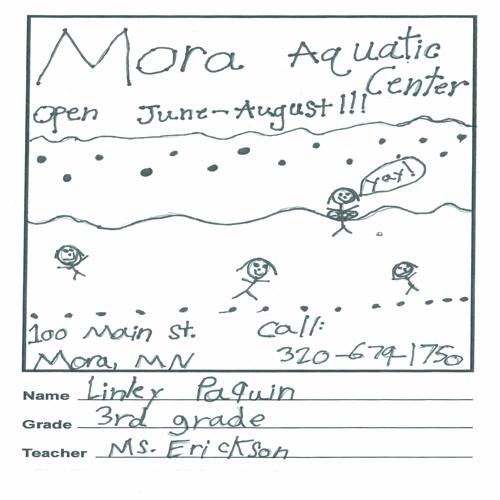 Mora Aquatic
Center
Open June-August!!!
yay!
100 Main St.
Mora, MN
Call:
320-679-1750
Name Linky Paquin
Grade 3rd grade
Teacher Ms. Erickson